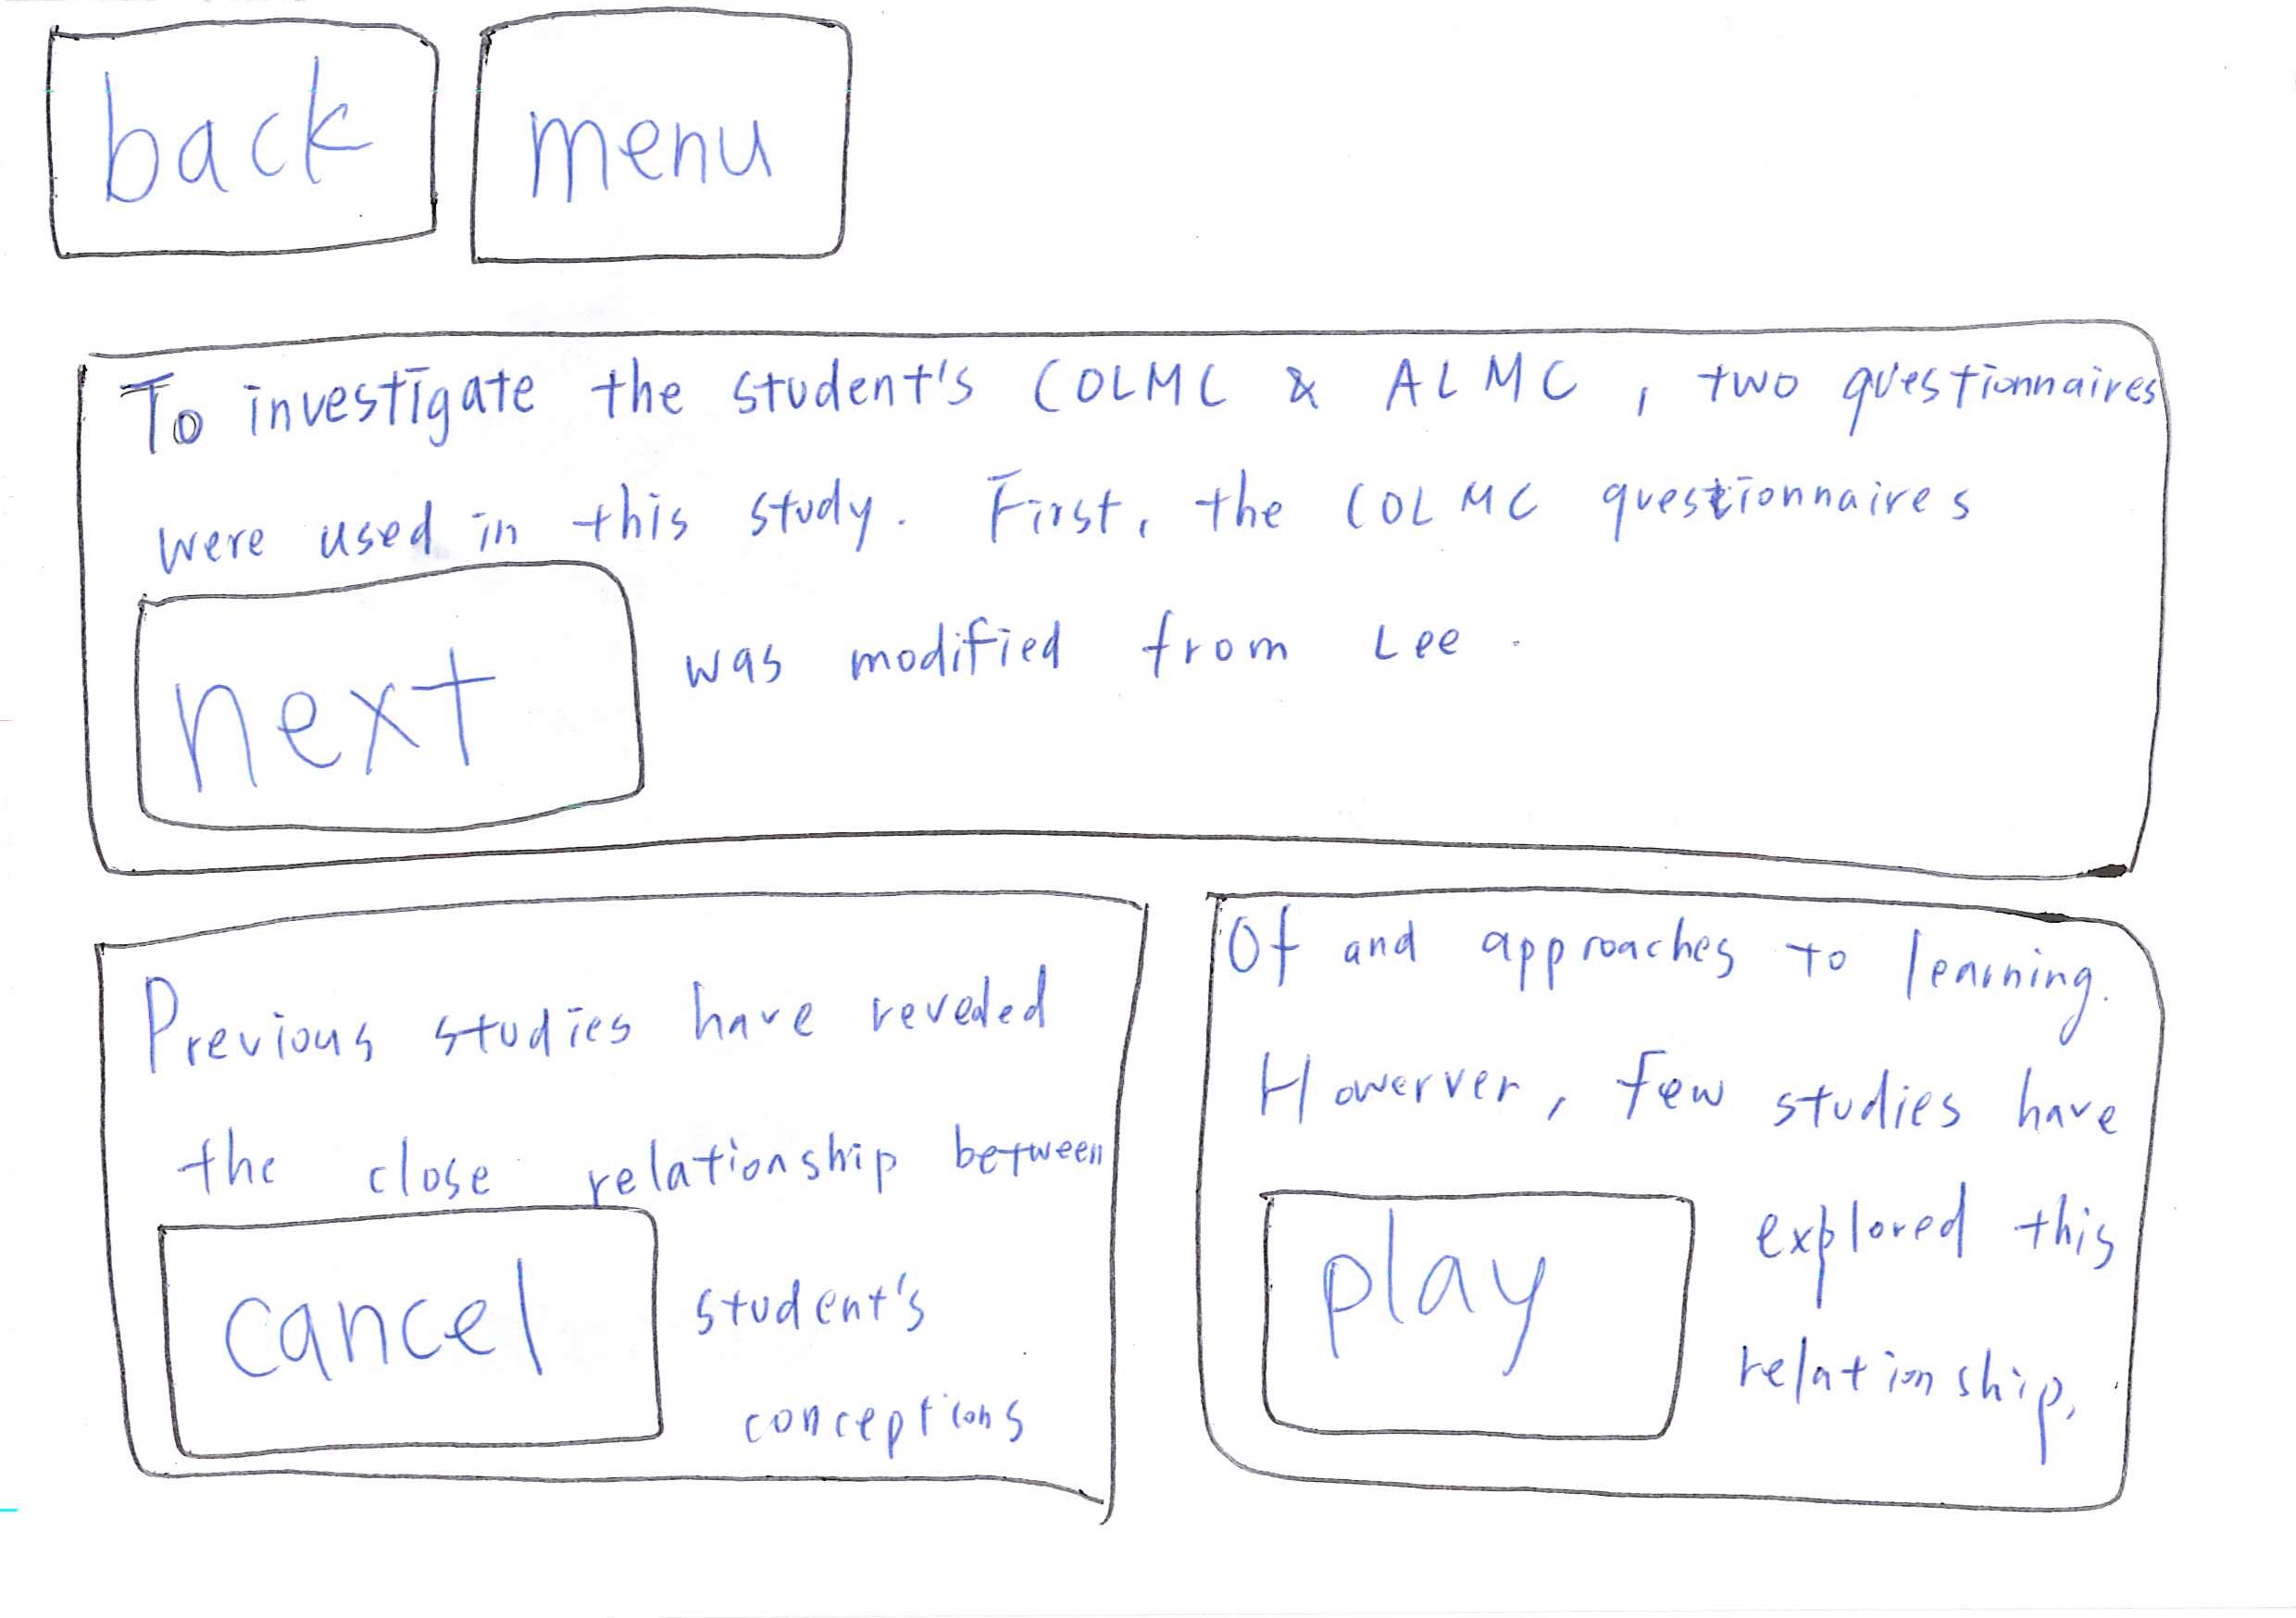 back menu
To investigate the student's COLMC & ALMC, two questionnaires
were used in this study. First, the COLMC questionnaires
next was modified from Lee.
Previous studies have reveded
the close relationship between
cancel student's
conceptions
Of and approaches to learning.
Howerver, few studies have
play explored this
relationship.